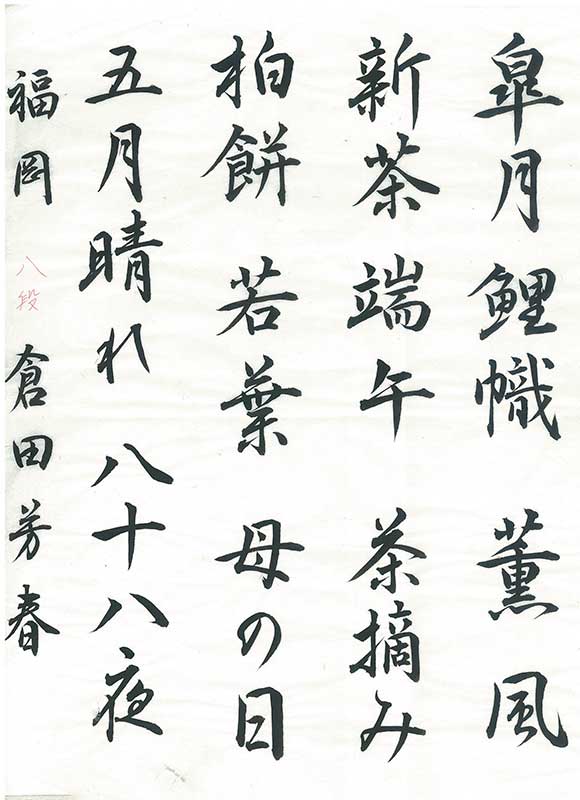 皐月 鯉幟 薫風
新茶 端午 茶摘み
柏餅 若葉 母の日
五月晴れ 八十八夜
福岡 八段 倉田芳春